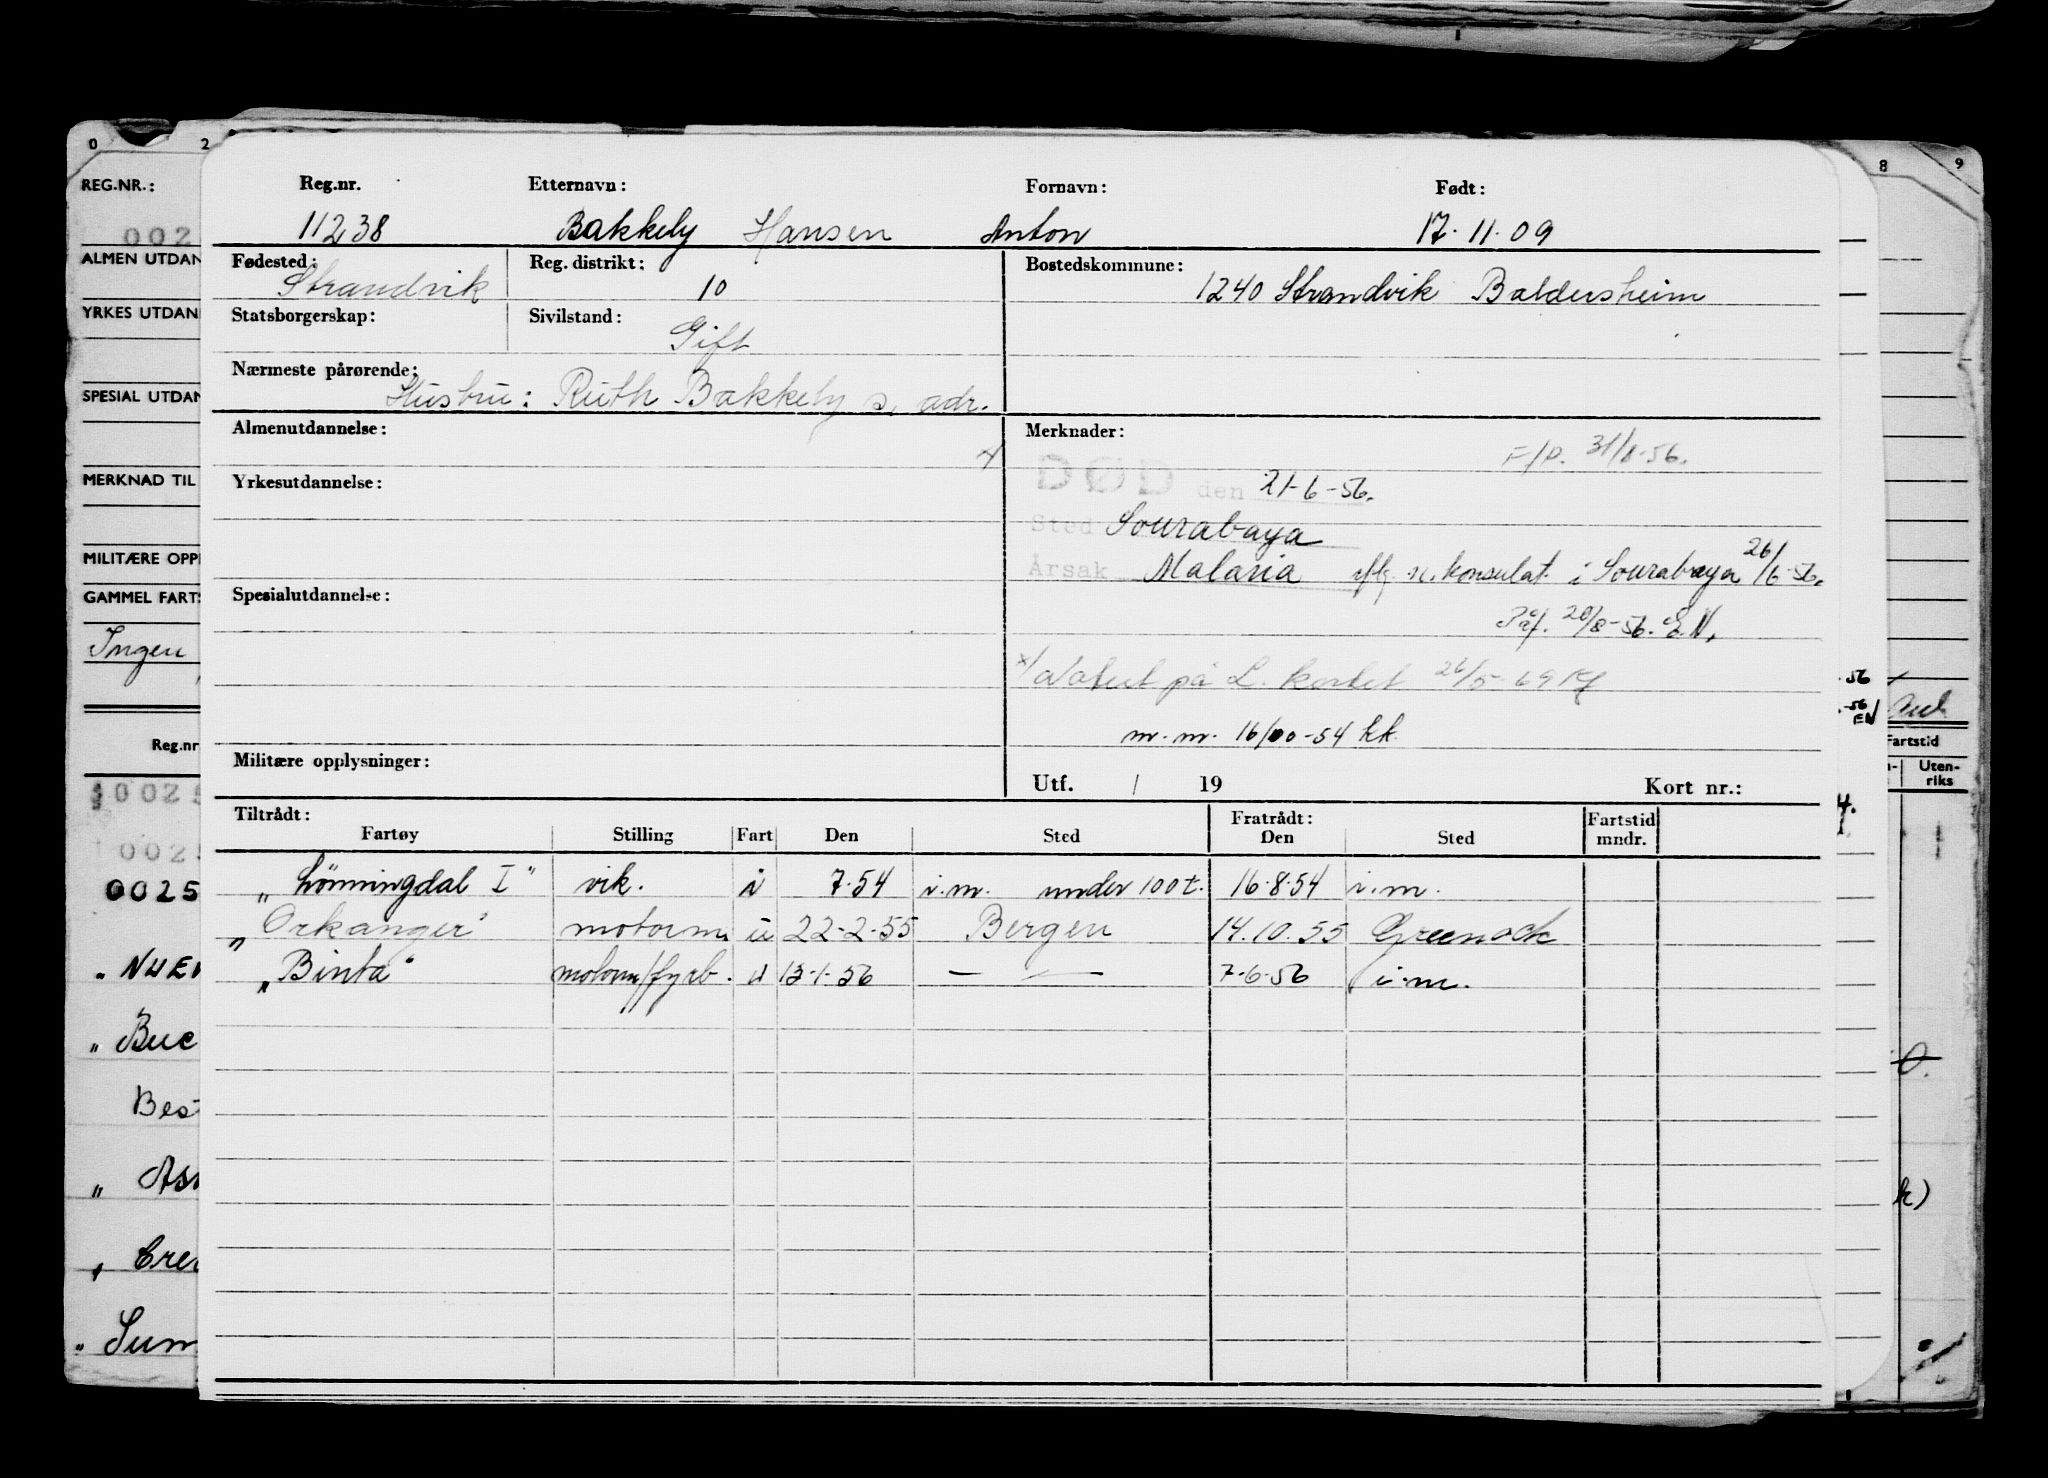 0 2 8 9
REG.NR.: Reg.nr. Etternavn: Fornavn: Født:
002 11238 Bakkely Hansen Anton 17.11.09
ALMEN UTDAN Fødested: Reg. distrikt: Bostedskommune:
Strandvik 10 1240 Strandvik Baldersheim
YRKES UTDAN Statsborgerskap: Sivilstand:
Gift
Nærmeste pårørende:
SPESIAL UTDAN Hustru: Ruth Bakkely s. adr.
Almenutdannelse: Merknader: F/P. 31/8-56.
MERKNAD TIL Yrkesutdannelse: DØD den 21-6-56.
Sted Sourabaya
MILITÆRE OPP Årsak Malaria iflg. n. konsulat i Sourabaya 26/6-56.
GAMMEL FARTS Spesialutdannelse:
Ingen Påf. 20/8-56. E.N.
x/ Notert på L. kortet 26/5-69
56
-56 EN
m.m. 16/10-54 kk.
Reg.nr Militære opplysninger: Fartstid
Utf. / 19 Kort nr.: Uten-
riks
Tiltrådt: Fratrådt: Fartstid
Fartøy Stilling Fart Den Sted Den Sted mndr.
002
0025 „Lönningdal I" vik. i 7.54 i.m. under 100 t. 16.8.54 i.m.
„Orkanger" motorm. u 22-2-55 Bergen 14.10.55 Greenock
„Binta" motorm/fyrb. u 13-1-56 — — 7-6-56 i.m.
„Buc
Bes
„
„
„Sum